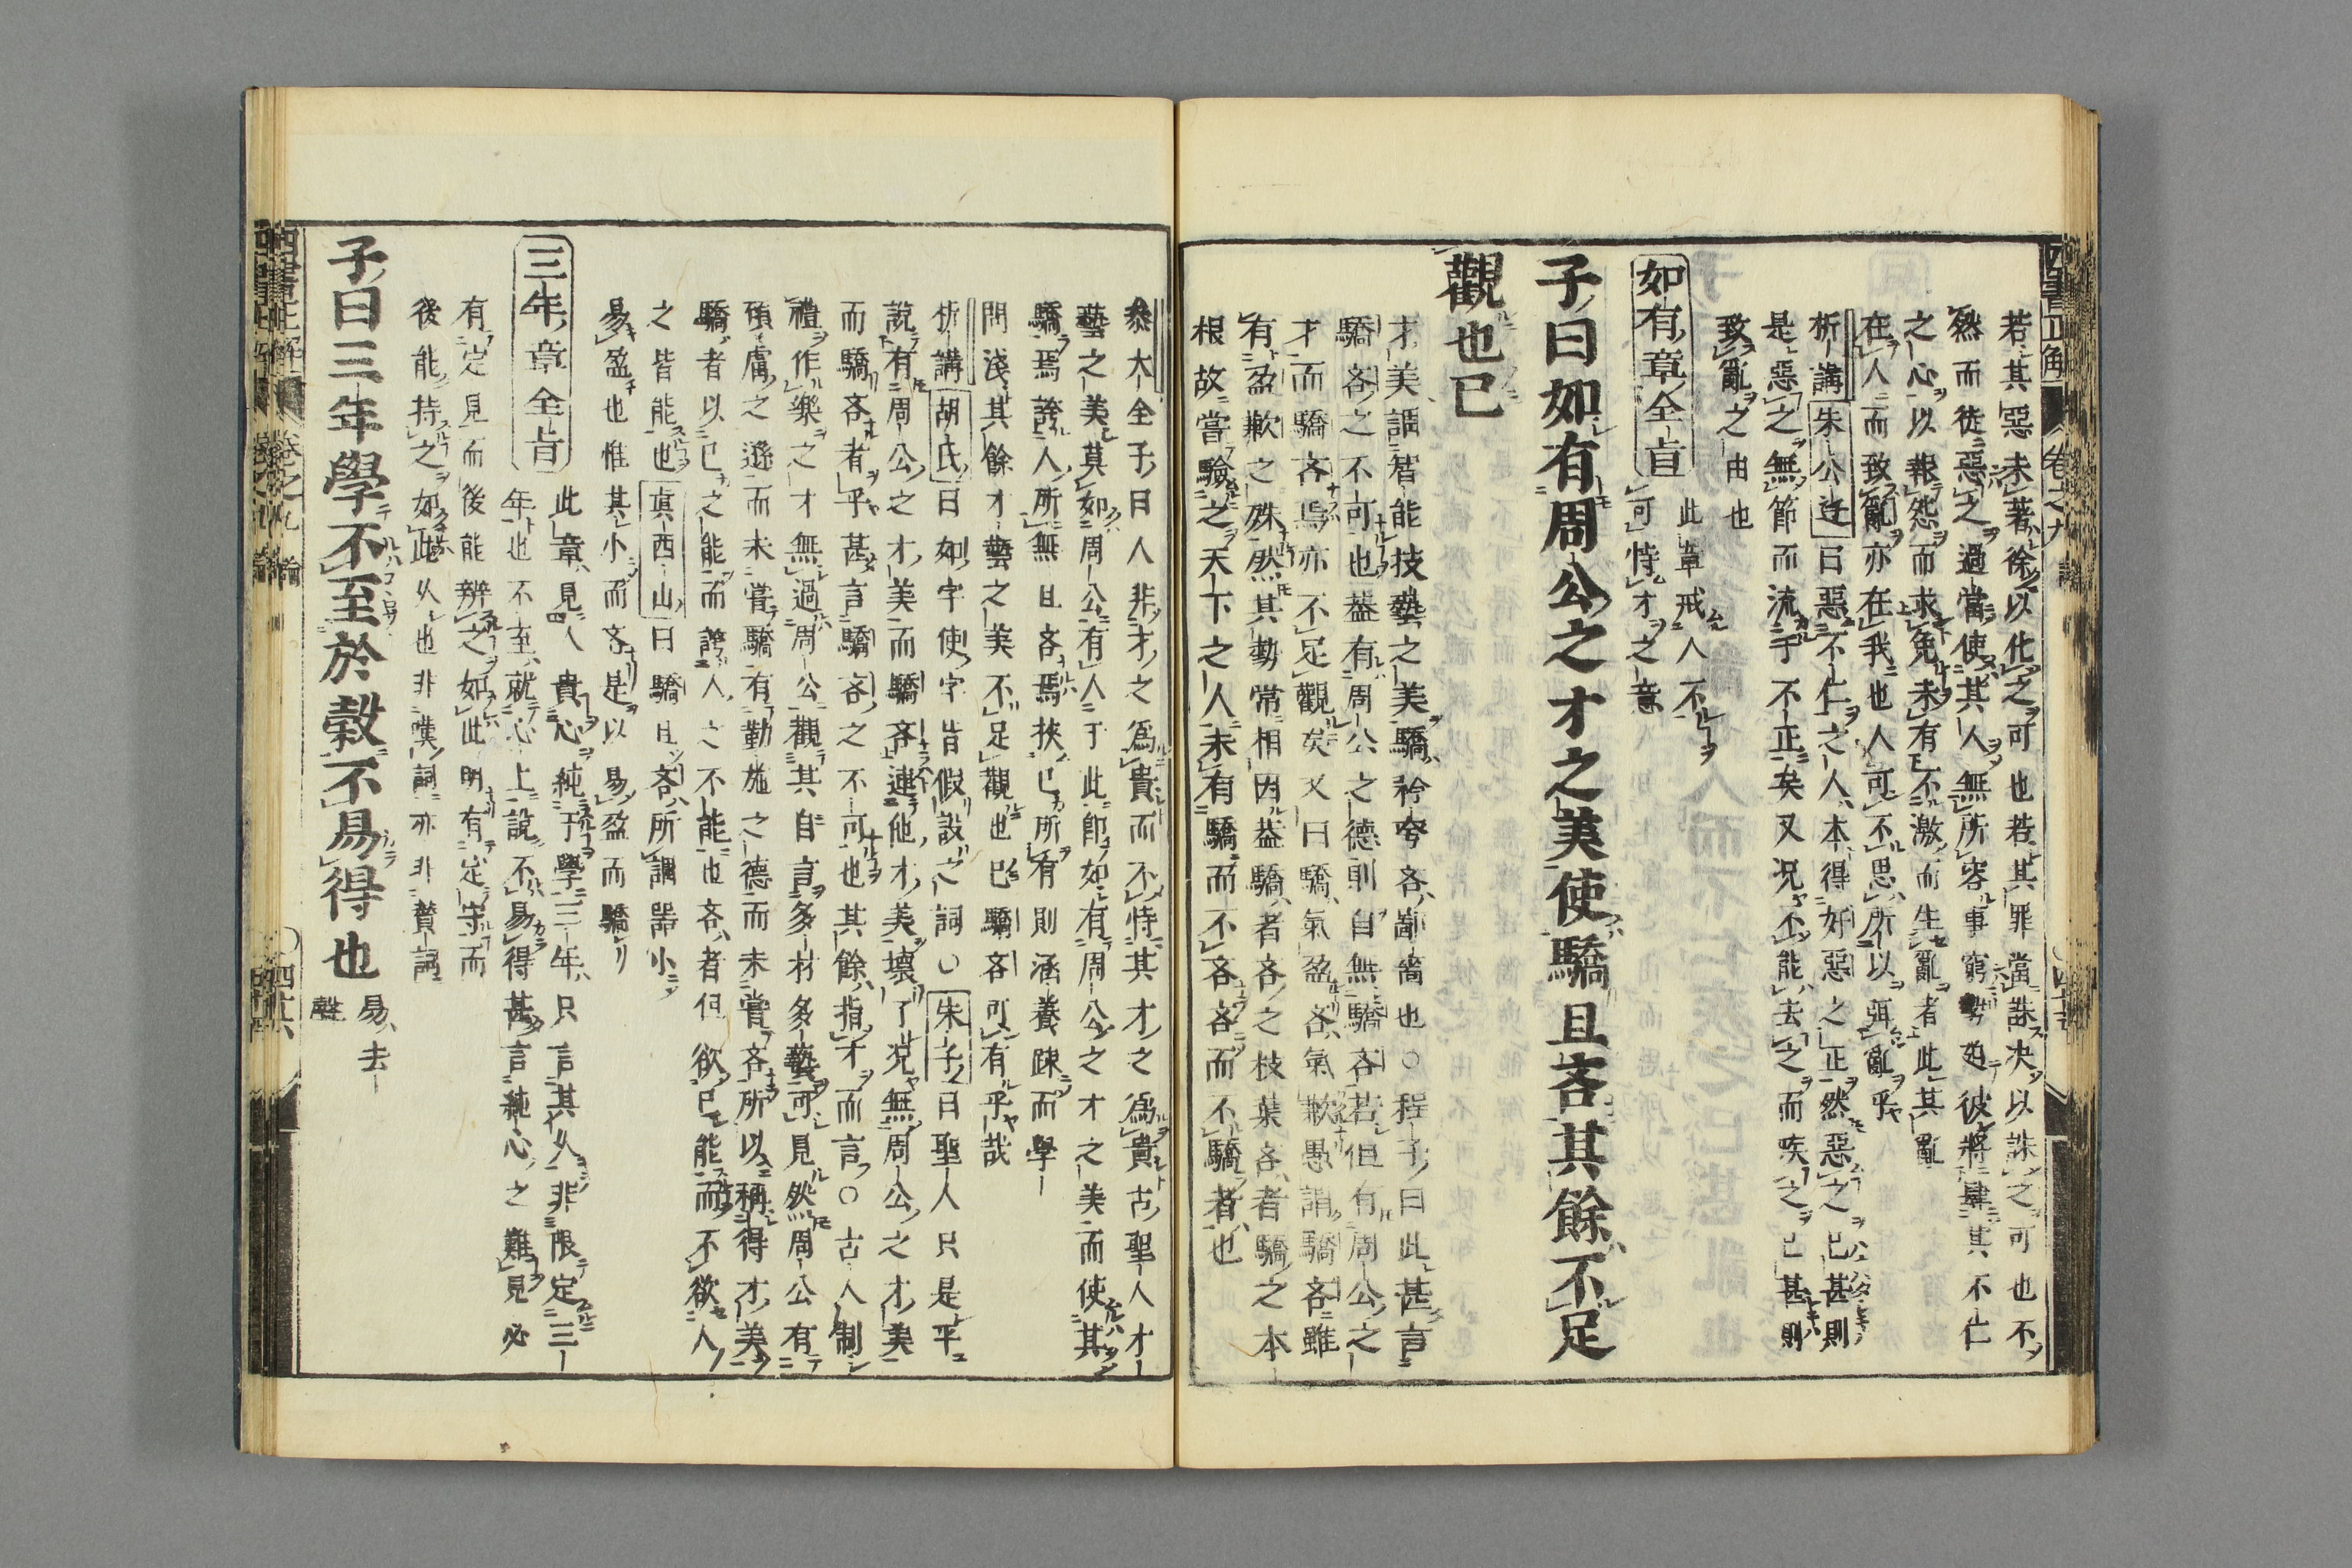 若其惡未著徐以化之可也若其罪當誅決以誅之可也不
然而徒惡之過當使其人無所容事窮勢迫彼將肆其不仁
之心以報怨而求免未有不激而生亂者此其亂
在人而致亂亦在我也人可不思所以弭亂乎
析講朱公遷曰惡不仁之人本得好惡之正然惡之已甚則
是惡之無節而流于不正矣又況不能去之而疾之已甚則
致亂之由也
如有章全旨
此章戒人不
可恃才之意
子曰如有周公之才之美使驕且吝其餘不足
觀也已
才美謂智能技藝之美驕矜夸吝鄙嗇也○程子曰此甚言
驕吝之不可也蓋有周公之德則自無驕吝若但有周公之
才而驕吝焉亦不足觀矣又曰驕氣盈吝氣歉愚謂驕吝雖
有盈歉之殊然其勢常相因蓋驕者吝之枝葉吝者驕之本
根故嘗驗之天下之人未有驕而不吝吝而不驕者也
四書正解 卷之九
叅大全子曰人非才之為貴而不恃其才之為貴古聖人才
藝之美莫如周公有人于此即如有周公之才之美而使其
驕焉誇人所無且吝焉挾已所有則涵養踈而學
問淺其餘才藝之美不足觀也已驕吝可有乎哉
析講胡氏曰如字使字皆假設之詞○朱子曰聖人只是平
說有周公之才美而驕吝連他才美壞了況無周公之才美
而驕吝者乎甚言驕吝之不可也其餘指才而言○古人制
禮作樂之才無過周公觀其自言多材多藝可見然周公有
碩膚之遜而未嘗驕有勤施之德而未嘗吝所以稱得才美
驕者以已之能而誇人之不能也吝者但欲已能而不欲人
之皆能也真西山曰驕且吝所謂器小
易盈也惟其小而吝是以易盈而驕
三年章全旨
此章見人貴心純于學三年只言其久非限定三
年也不至就心上說不易得甚言純心之難見必
有定見而後能辨之如此明有定守而
後能持之如此久也非嘆詞亦非贊詞
子曰三年學不至於榖不易得也
易去
聲
四書正解 卷之九 論 四十六